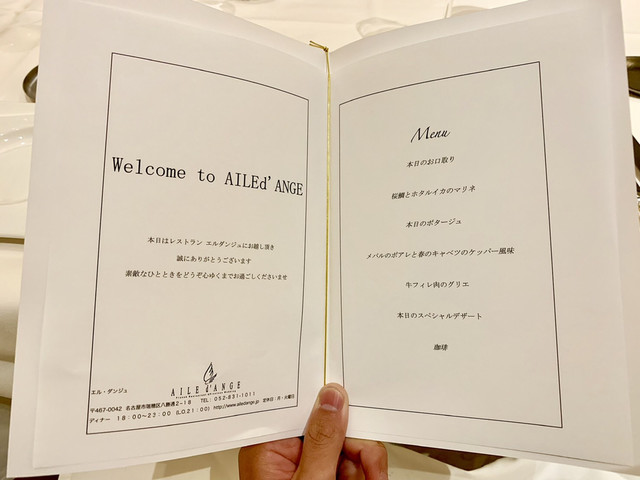 Welcome to AILEd'ANGE
本日はレストラン エルダンジュにお越し頂き
誠にありがとうございます
素敵なひとときをどうぞ心ゆくまでお過ごしくださいませ
エル・ダンジュ
AILE d'ANGE
French Restaurant Whiteish Wedding
〒467-0042 名古屋市瑞穂区八勝通2-18 TEL:052-831-1011
ディナー 18:00~23:00 (L.O.21:00) http://www.ailedange.jp 定休日:月・火曜日
Menu
本日のお口取り
桜鯛とホタルイカのマリネ
本日のポタージュ
メバルのポアレと春のキャベツのケッパー風味
牛フィレ肉のグリエ
本日のスペシャルデザート
珈琲